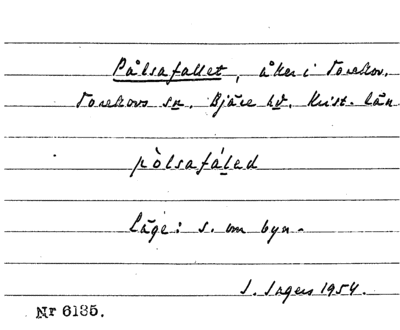 Pålsafallet, åker i Torekov.
Torekovs sn. Bjäre hd. Krist. län
pòlsafáled
Läge: s. om byn.
I. Ingers 1954.
Nr 6135.